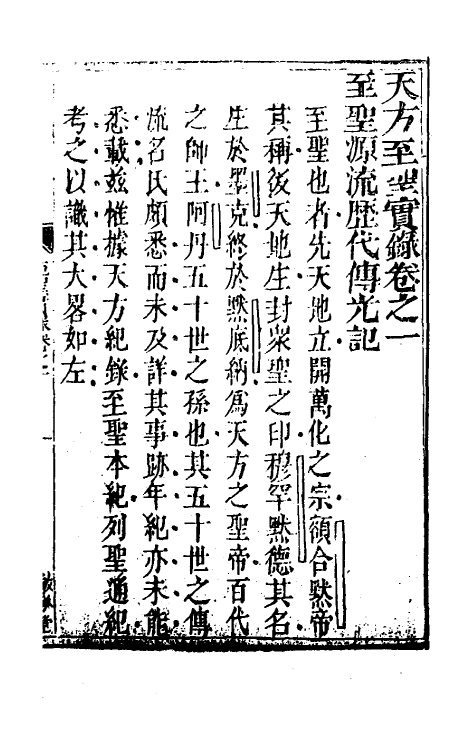 天方至聖實錄卷之一
至聖源流歷代傳光記
至聖也者先天地立開萬化之宗額合黙帝
其稱後天地生封衆聖之印穆罕黙德其名
生於墨克終於黙底納爲天方之聖帝百代
之師王阿丹五十世之孫也其五十世之傳
流名氏頗悉而未及詳其事跡年紀亦未能
悉載兹惟據天方紀錄至聖本紀列聖通紀
考之以識其大畧如左